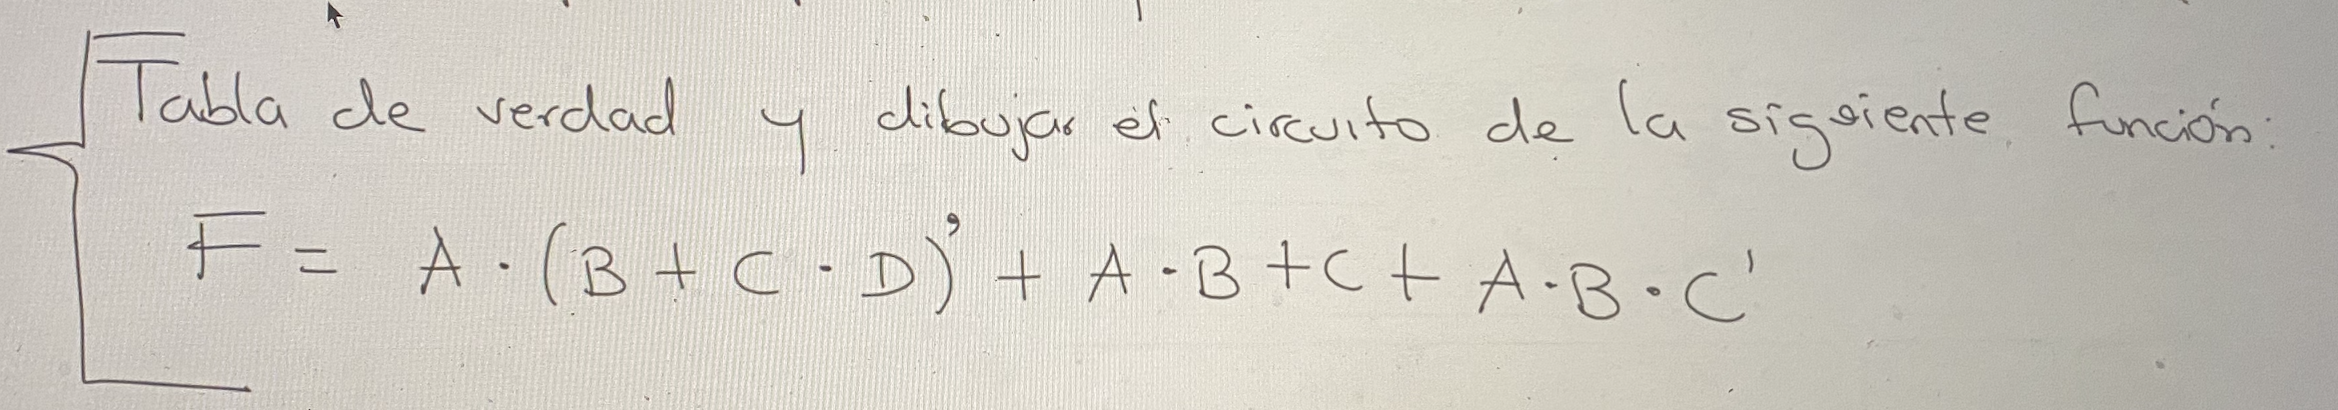 Tabla de verdad y dibujar el circuito de la siguiente función:
F = A · (B + C · D)' + A · B + C + A · B · C'